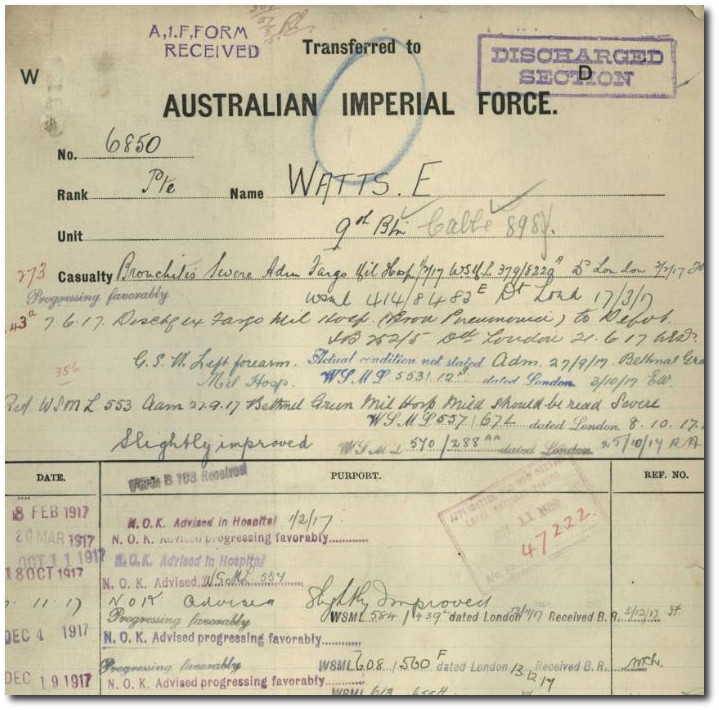 A.I.F. FORM
RECEIVED
Transferred to
DISCHARGED
SECTION
W
D
AUSTRALIAN IMPERIAL FORCE.
No. 6850
Rank Pte Name WATTS. E
Unit 9th Btn Cable 898
273 Casualty Bronchitis Severe Adm Fargo Mil Hosp 1/2/17 WSML 379/8229 London 2/2/17
Progressing favorably WSML 414/8483 E Dt Lond 17/3/17
43a 7.6.17. Dischge ex Fargo Mil Hosp. (Bron Pneumonia) to Depot
252/5 Dtd London 21.6.17
G.S.W. Left forearm. Actual condition not stated Adm. 27/9/17 Bethnal Grn
356 Mil Hosp. W.S.M.L 553/12 dated London 3/10/17 EW.
Ref WSML 553 Adm 27.9.17 Bethnel Green Mil Hosp Mild should be read Severe
W.S.M.L 557/67L dated London 8.10.17.
Slightly improved W.S.M.L 570/288AA dated London 25/10/17
DATE. PURPORT. REF. NO.
Form B 103 Received
8 FEB 1917 N.O.K. Advised in Hospital 1/2/17
20 MAR 1917 N. O. K. Advised progressing favorably
OCT 11 1917 N.O.K. Advised in Hospital
18 OCT 1917 N. O. K. Advised WSML 557
47222.
11.17 N.O.K Advised Slightly Improved
Progressing favorably WSML 584/439 dated London Received B.R. 3/12/17
DEC 4 1917 N. O. K. Advised progressing favorably
Progressing favorably WSML 608/560 F dated London 13 12 17 Received B.R.
DEC 19 1917 N. O. K. Advised progressing favorably
WSML